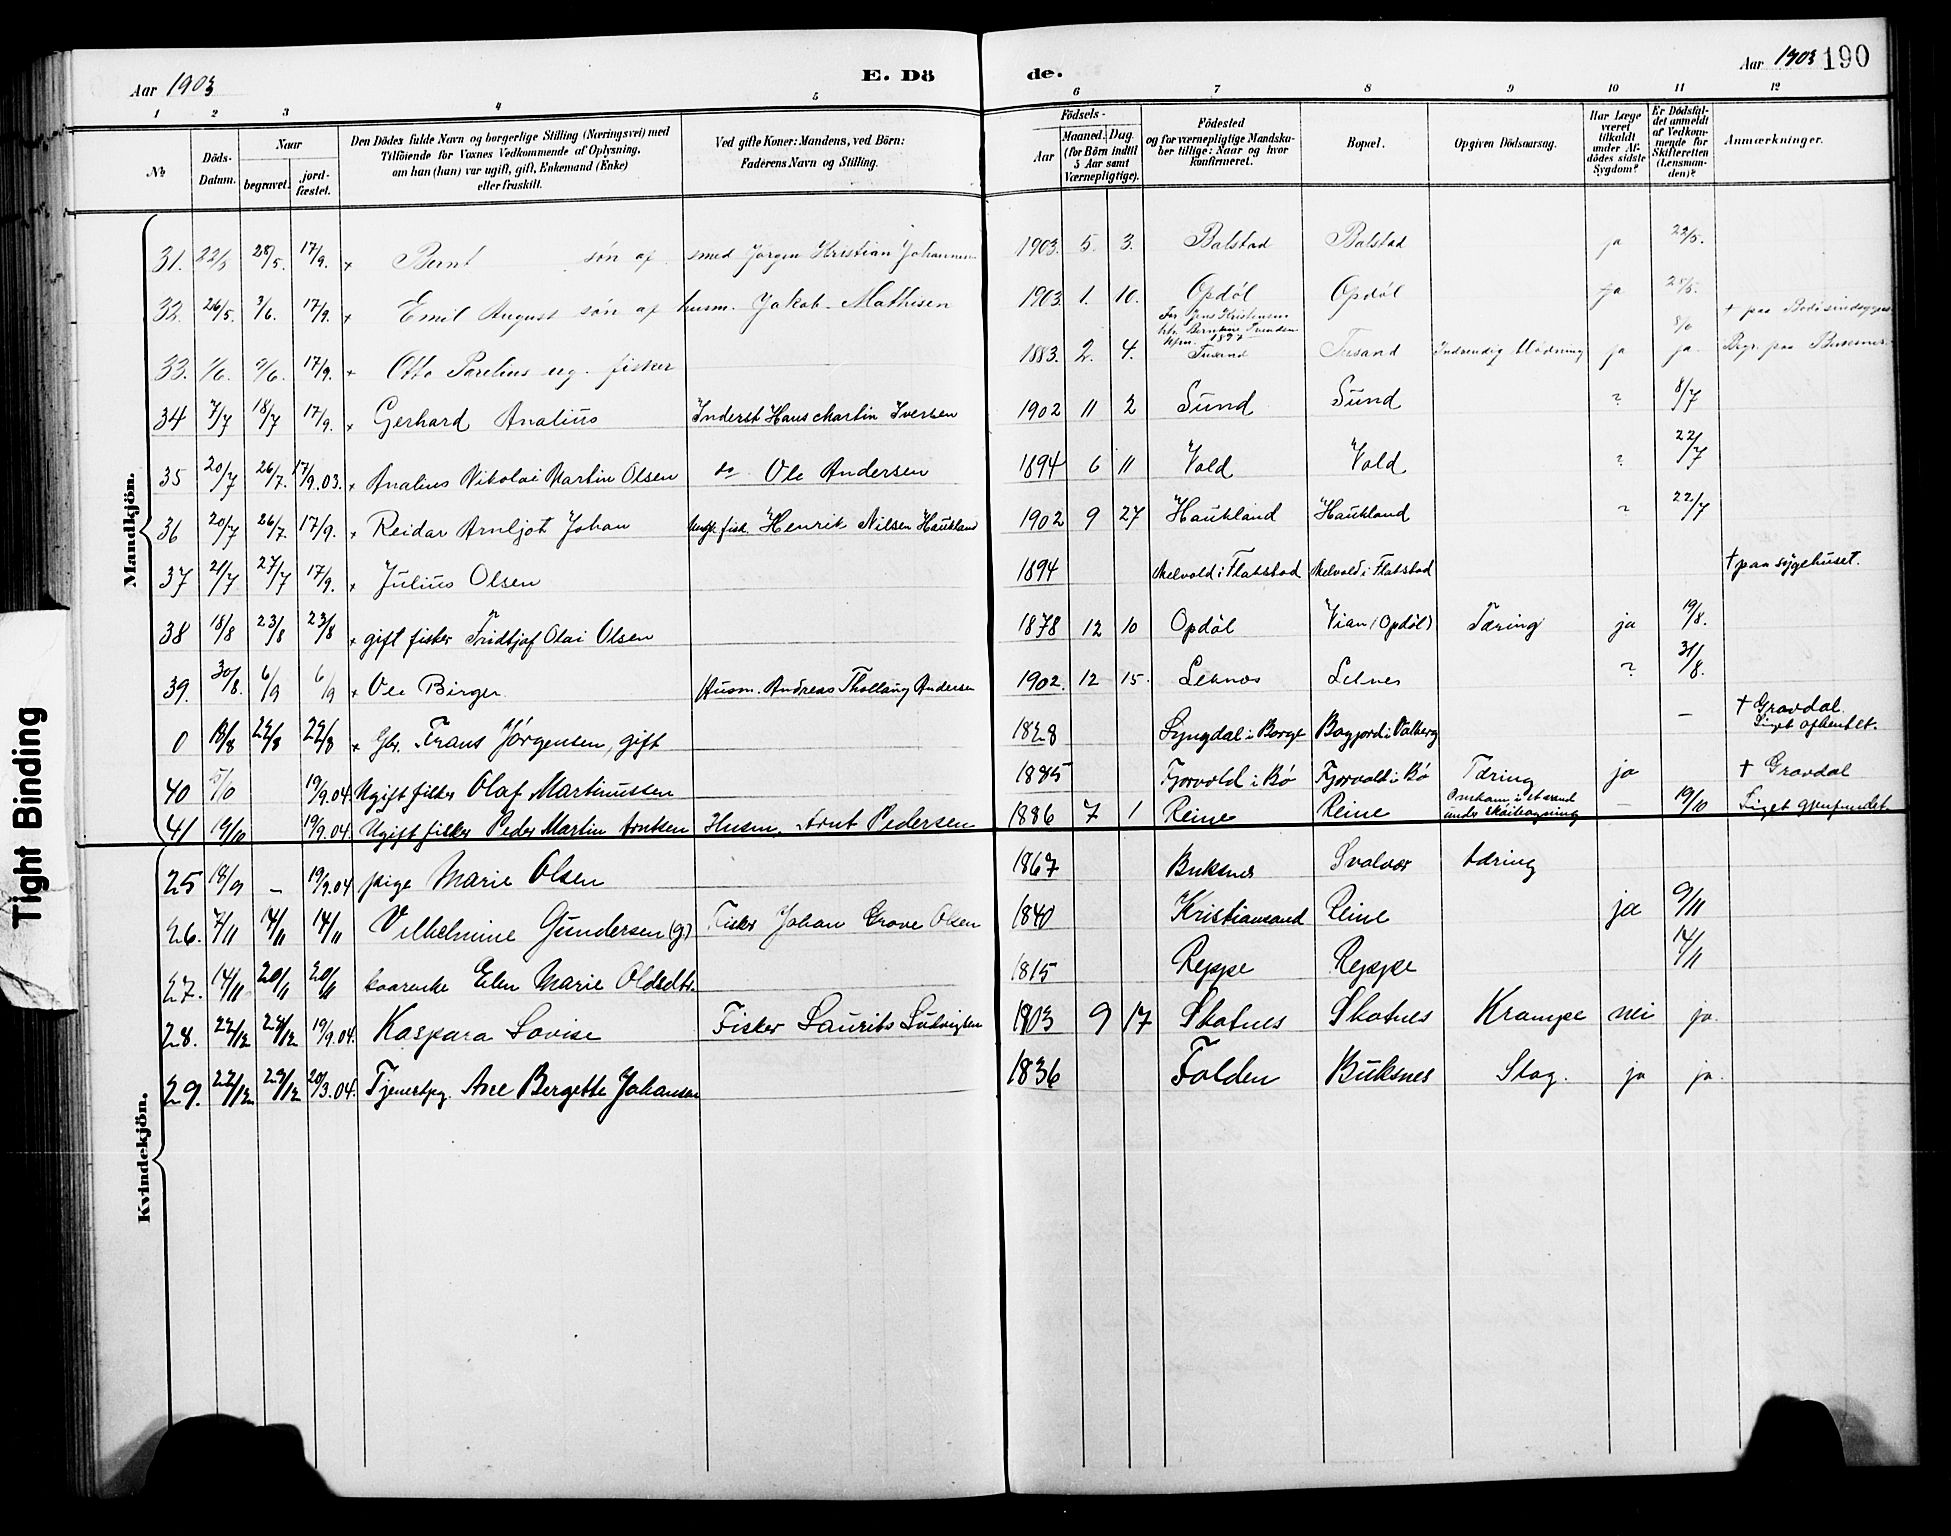 Aar 1903
E. Dö
de.
Aar 1903
190
1 2 3 4 5 6 7 8 9 10 11 12
№
Döds-Datum.
Naar
begravet.
jord-fæstet.
Den Dödes fulde Navn og borgerlige Stilling (Næringsvei) med
Tilföiende for Voxnes Vedkommende af Oplysning,
om han (hun) var ugift, gift, Enkemand (Enke)
eller fraskilt.
Ved gifte Koner: Mandens, ved Börn:
Faderens Navn og Stilling.
Födsels-
Aar
Maaned. Dag.
(for Börn indtil
5 Aar samt
Værnepligtige).
Födested
og for værnepligtige Mandska-
ber tillige: Naar og hvor
konfirmeret.
Bopæl.
Opgiven Dödsaarsag.
Har Læge
været
tilkaldt
under Af-
dödes sidste
Sygdom?
Er Dödsfal-
det anmeldt
af Vedkom-
mende for
Skifteretten
(Lensman-
den)?
Anmærkninger.
Mandkjön.
31. 22/5 28/5. 17/9. × Bernt søn af smed Jørgen Kristian Johannesen 1903. 5. 3. Balstad Balstad ja 22/5.
32. 26/5. 3/6. 17/9. × Emil August søn af husm. Jakob Mathisen 1903. 1. 10. Opdøl Opdøl ja 28/5.
Far Jens Kristensen
1897
† paa
33. 1/6. 9/6. 17/9. × Otto Parelius ug. fisker 1883. 2. 4. Tusand Tusand Indvendig blødning ja ja. Begr. paa
34 7/7 18/7 17/9. × Gerhard Analius Inderst Hans Martin Iversen 1902 11 2 Sund Sund ? 8/7
35 20/7 26/7. 17/9.03. × Analius Nikolai Martin Olsen do Ole Andersen 1894 6 11 Vold Vold ? 22/7
36 20/7 26/7. 17/9. × Reidar Arnljot Johan fisk. Henrik Nilsen Haukland 1902 9 27 Haukland Haukland ? 22/7
37 21/7 27/7 17/9. × Julius Olsen 1894 Melvold i Flakstad Melvold i Flakstad † paa sygehuset.
38 18/8 23/8 23/8 × gift fisker Fridtjof Olai Olsen 1878 12 10 Opdøl Vian (Opdøl) Tæring ja 19/8.
39. 30/8. 6/9 6/9 × Ole Birger Husm. Andreas Thollaug Andersen 1902. 12 15. Leknes Leknes ? 31/8.
0 18/8 22/8 22/8 × Gbr. Frans Jørgensen, gift 1828 Lyngdal i Borge Bagjord i Valberg — † Gravdal.
Liget afhentet.
40 19/9.04 Ugift fisker Olaf Martinussen 1885 Fjørvold i Bø Fjørvold i Bø Tæring ja † Gravdal
41 19/10 19/9.04. Ugift fisker Peder Martin Arntsen Husm. Arnt Pedersen 1886 7 1 Reine Reine Omkom i et
under — 19/10 Liget gjenfundet
Kvindekjön.
25 18/9 — 19/9.04 pige Marie Olsen 1867 Buksnes Svolvær tæring
26. 7/11 14/11 14/11 Vilhelmine Gundersen (g.) Fisker Johan Grove Olsen 1840 Kristiansand Reine ja 9/11
27. 14/11 20/11 20/11 kaarenke Elen Marie Olsdtr. 1815 Reppe Reppe 14/11
28. 22/12 29/12 19/9.04. Kaspara Lovise Fisker Laurits Ludvigsen 1903 9 17 Skotnes Skotnes Krampe nei ja.
29. 22/12 29/12 20/3.04. Tjenestpg. Ane Bergette Johansen 1836 Folden Buksnes Slag. ja ja.
Tight Binding